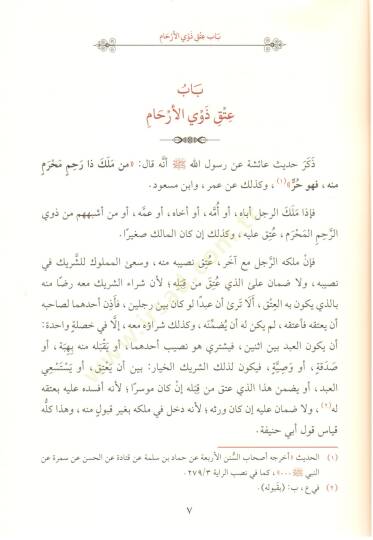 بَاب عِتْقِ ذَوْي الأَرْحَامِ
بَابُ
عِتْقِ ذَوْي الأَرْحَامِ
ذَكَرَ حديث عائشة عن رسول الله ﷺ أنَّه قال: «من مَلَكَ ذا رَحِمٍ مَحْرَمٍ
منه، فهو حُرٌّ»(١)، وكذلك عن عمر، وابن مسعود.
فإذا مَلَكَ الرجل أباه، أو أُمَّه، أو أخاه، أو عمَّه، أو من أشبههم من ذوي
الرَّحِمِ المَحْرَمِ، عَتِقَ عليه، وكذلك إن كان المالك صغيرًا.
فإنْ ملكه الرَّجل مع آخَر، عَتَقَ نصيبه منه، وسعىٰ المملوك للشَّريك في
نصيبه، ولا ضمان علىٰ الذي عَتَقَ من قِبَلِه؛ لأن شراء الشريك معه رضًا منه
بالذي يكون به العِتْق، أَلَا تَرىٰ أن عبدًا لو كان بين رجلين، فأَذِن أحدهما لصاحبه
أن يعتقه فأعتقه، لم يكن له أن يُضَمِّنَه، وكذلك شراؤه معه، إلَّا في خصلةٍ واحدة:
أن يكون العبد بين اثنين، فيشتري هو نصيب أحدهما، أو يَقْبَله منه بهِبَة، أو
صَدَقَةٍ، أو وَصِيَّةٍ، فيكون لذلك الشريك الخيار: بين أن يَعْتِق، أو يَسْتَسْعِي
العبد، أو يضمن هذا الذي عتق من قِبَله إنْ كان موسرًا؛ لأنه أفسده عليه بعتقه
له(٢)، ولا ضمان عليه إن كان ورثه؛ لأنه دخل في ملكه بغير قبول منه، وهذا كلُّه
قياس قول أبي حنيفة.
(١) الحديث «أخرجه أصحاب السُّنن الأربعة عن حماد بن سلمة عن قتادة عن الحسن عن سمرة عن
النبي ﷺ ...»، كما في نصب الراية ٢٧٩/٣.
(٢) في ع، ب: (بقبوله).
٧